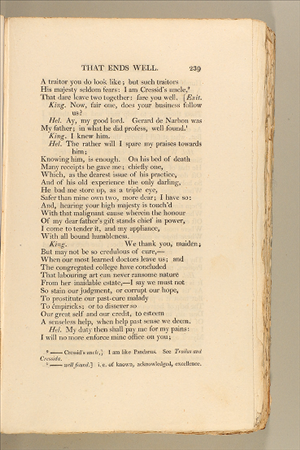 THAT ENDS WELL. 239
A traitor you do look like; but such traitors
His majesty seldom fears: I am Cressid's uncle,
That dare leave two together: fare you well. [Exit.
King. Now, fair one, does your business follow
us?
Hel. Ay, my good lord. Gerard de Narbon was
My father; in what he did profess, well found.
King. I knew him.
Hel. The rather will I spare my praises towards
him;
Knowing him, is enough. On his bed of death
Many receipts he gave me; chiefly one,
Which, as the dearest issue of his practice,
And of his old experience the only darling,
He bad me store up, as a triple eye,
Safer than mine own two, more dear; I have so:
And, hearing your high majesty is touch'd
With that malignant cause wherein the honour
Of my dear father's gift stands chief in power,
I come to tender it, and my appliance,
With all bound humbleness.
King. We thank you, maiden;
But may not be so credulous of cure,—
When our most learned doctors leave us; and
The congregated college have concluded
That labouring art can never ransome nature
From her inaidable estate,—I say we must not
So stain our judgment, or corrupt our hope,
To prostitute our past-cure malady
To émpiricks; or to dissever so
Our great self and our credit, to esteem
A senseless help, when help past sense we deem.
Hel. My duty then shall pay me for my pains:
I will no more enforce mine office on you;
—— Cressid's uncle,] I am like Pandarus. See Troilus and
Cressida.
—— well found.] i. e. of known, acknowledged, excellence.